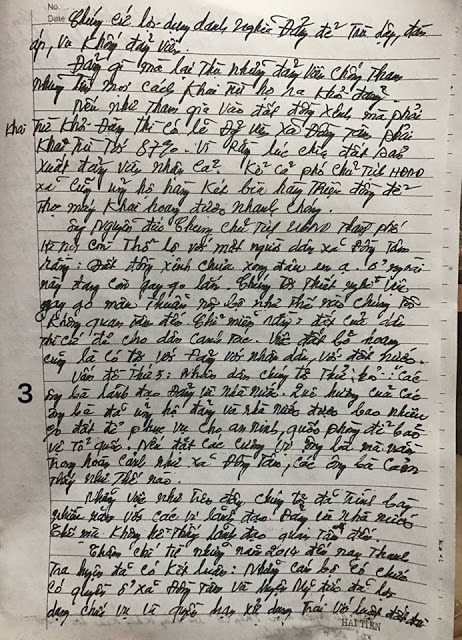 No.
Date
Chúng cứ lợi dụng danh nghĩa Đảng để trù dập, đàn
áp, và khống đảng viên.
Đảng gì mà lại thù những đảng viên chống tham
nhũng tìm mọi cách khai trừ họ ra khỏi đảng.
Nếu như tham gia vào đất đồng xênh mà phải
Khai trừ khỏi Đảng thì có lẽ Đ Viên xã Đồng Tâm phải
khai trừ tới 87%. Vì rằng lúc chia đất
xuất đảng viên nhận cả. Kể cả phó chủ tịch HĐND
xã cũng ủng hộ hàng két bia hay để
thợ máy khai hoang được nhanh chóng.
Ông Nguyễn Đức Chung chủ tịch UBND Thành phố
Hà Nội còn thổ lộ với một người dân xã Đồng Tâm
rằng: Đất đồng xênh chưa xong đâu em ạ. ở ngoài
này đang còn gay go lắm. Chúng tôi thiết nghĩ việc
gay go mâu thuẫn nội bộ như thế nào chúng tôi
không quan tâm đến. Chỉ miễn rằng: đất của dân
thì cứ để cho dân canh tác. Việc đất bỏ hoang
cũng là có tội với Đảng với nhân dân, với đất nước.
Vấn đề thứ 5: Nhân dân chúng tôi thử hỏi: Các
ông bà lãnh đạo Đảng và nhà nước. Quê hương của các
ông bà đã ủng hộ đảng và nhà nước được bao nhiêu
đất để phục vụ cho an ninh, quốc phòng để bảo
vệ tổ quốc. Nếu đặt các cương vị ông bà mà nằm
trong hoàn cảnh như xã Đồng Tâm, các ông bà cảm
thấy như thế nào.
Những việc như trên đây chúng tôi đã trình bày
nhiều năm với các vị lãnh đạo Đảng và nhà nước
Thế mà không hề thấy lãnh đạo quan tâm đến.
Thậm chí từ những năm 2014 đến nay Thanh
Tra huyện đã có kết luận: Những cán bộ có chức
có quyền ở xã Đồng Tâm và huyện Mỹ Đức đã lợi
dụng chức vụ và quyền hạn sử dụng trái với luật đất đai
3
HẢI TIẾN